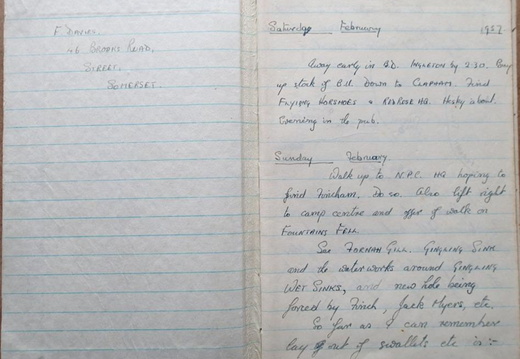 F. DAVIES.
46 BROOKS ROAD.
STREET.
SOMERSET.
Saturday February 1957
Away early in B.D. INGLETON by 2.30. Buy
up stock of B.U. Down to CLAPHAM. Find
FLYING HORSHOES & REDROSE HQ. Hesky is about.
Evening in the pub.
Sunday February
Walk up to N.P.C. HQ hoping to
find Fincham. Do so. Also lift right
to camp centre and offer of walk on
FOUNTAINS FELL.
See FORNAH GILL. GINGLING SINK
and the waterworks around GINGLING
WET SINKS, and new hole being
forced by Finch, Jack Myers, etc.
So far as I can remember
lay out of swallets etc is :-